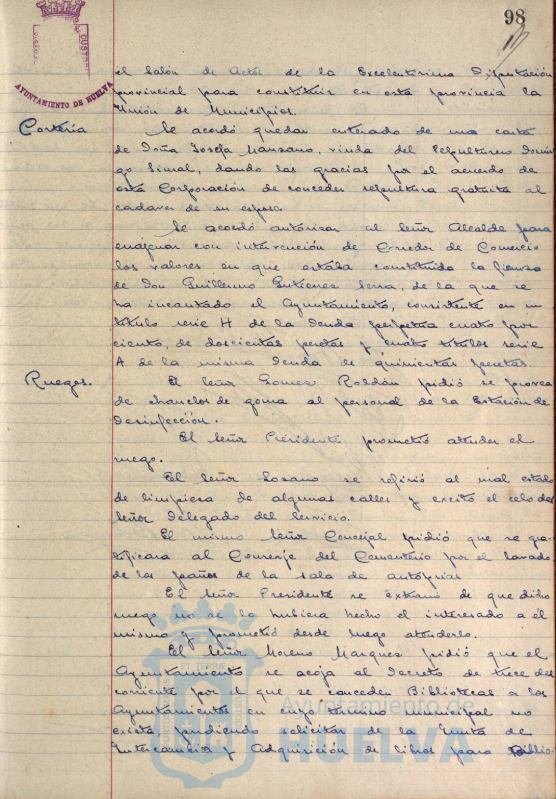 98
AYUNTAMIENTO DE HUELVA
el salón de Actos de la Excelentísima Diputación
provincial para constituir en esta provincia la
Unión de Municipios.
Cortesía
Se acordó quedar enterado de una carta
de Doña Josefa Manzano, viuda del Sepulturero Domin
go Simal, dando las gracias por el acuerdo de
esta Corporación de conceder sepultura gratuita al
cadaver de su esposo.
Se acordó autorizar al Señor Alcalde para
enagenar con intervención de Corredor de Comercio
los valores en que estaba constituida la fianza
de Don Guillermo Gutierrez Serra, de la que se
ha incautado el Ayuntamiento, consistente en un
título serie H de la Deuda perpetua cuatro por
ciento, de doscientas pesetas y cuatro títulos serie
A de la misma Deuda de quinientas pesetas.
Ruegos.
El Señor Gomez Roldán pidió se provea
de chanclos de goma al personal de la Estación de
Desinfección.
El Señor Presidente prometió atender el
ruego.
El Señor Lozano se refirió al mal estado
de limpieza de algunas calles y excitó el celo del
Señor Delegado del Servicio.
El mismo Señor Concejal pidió que se gra-
tificara al Conserje del Cementerio por el lavado
de los paños de la sala de autopsias
El Señor Presidente se extrañó de que dicho
ruego no se lo hubiera hecho el interesado a él
mismo y prometió desde luego atenderlo.
El Señor Moreno Marquez pidió que el
Ayuntamiento se acoja al Decreto de trece del
corriente por el que se conceden Bibliotecas a los
Ayuntamientos en cuyo término municipal no
exista, pudiendo solicitar de la Junta de
Intercambio y Adquisición de libros para Biblio-
Ayuntamiento de
HUELVA